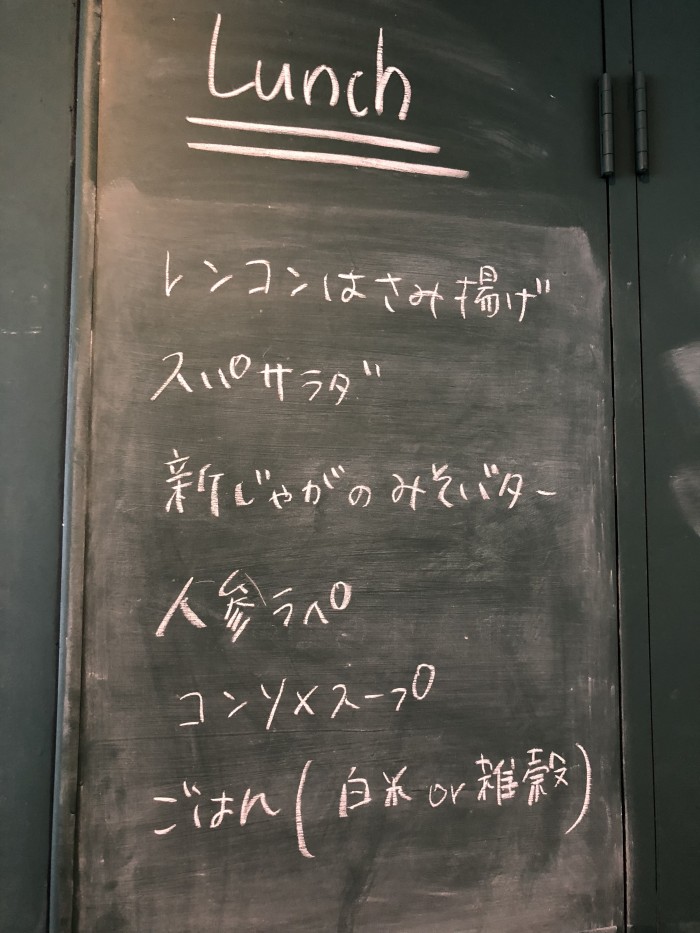 Lunch
レンコンはさみ揚げ
スパサラダ
新じゃがのみそバター
人参ラペ
コンソメスープ
ごはん(白米 or 雑穀)